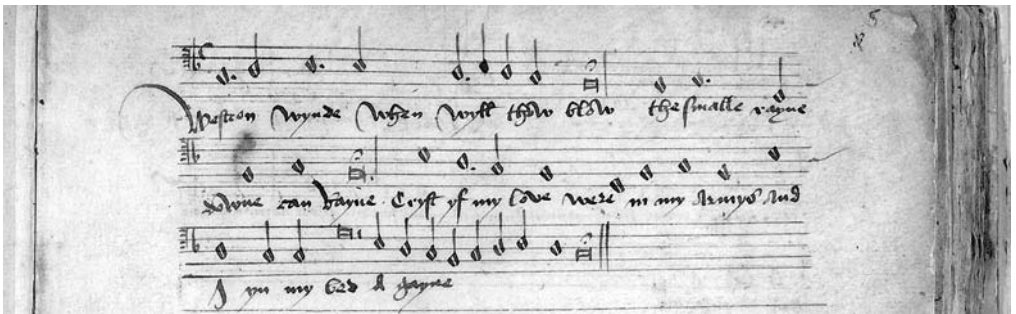 5
Westron wynde when wyll thow blow the smalle rayne
downe can Rayne Cryst yf my love were in my Armys And
I yn my bed A gayne